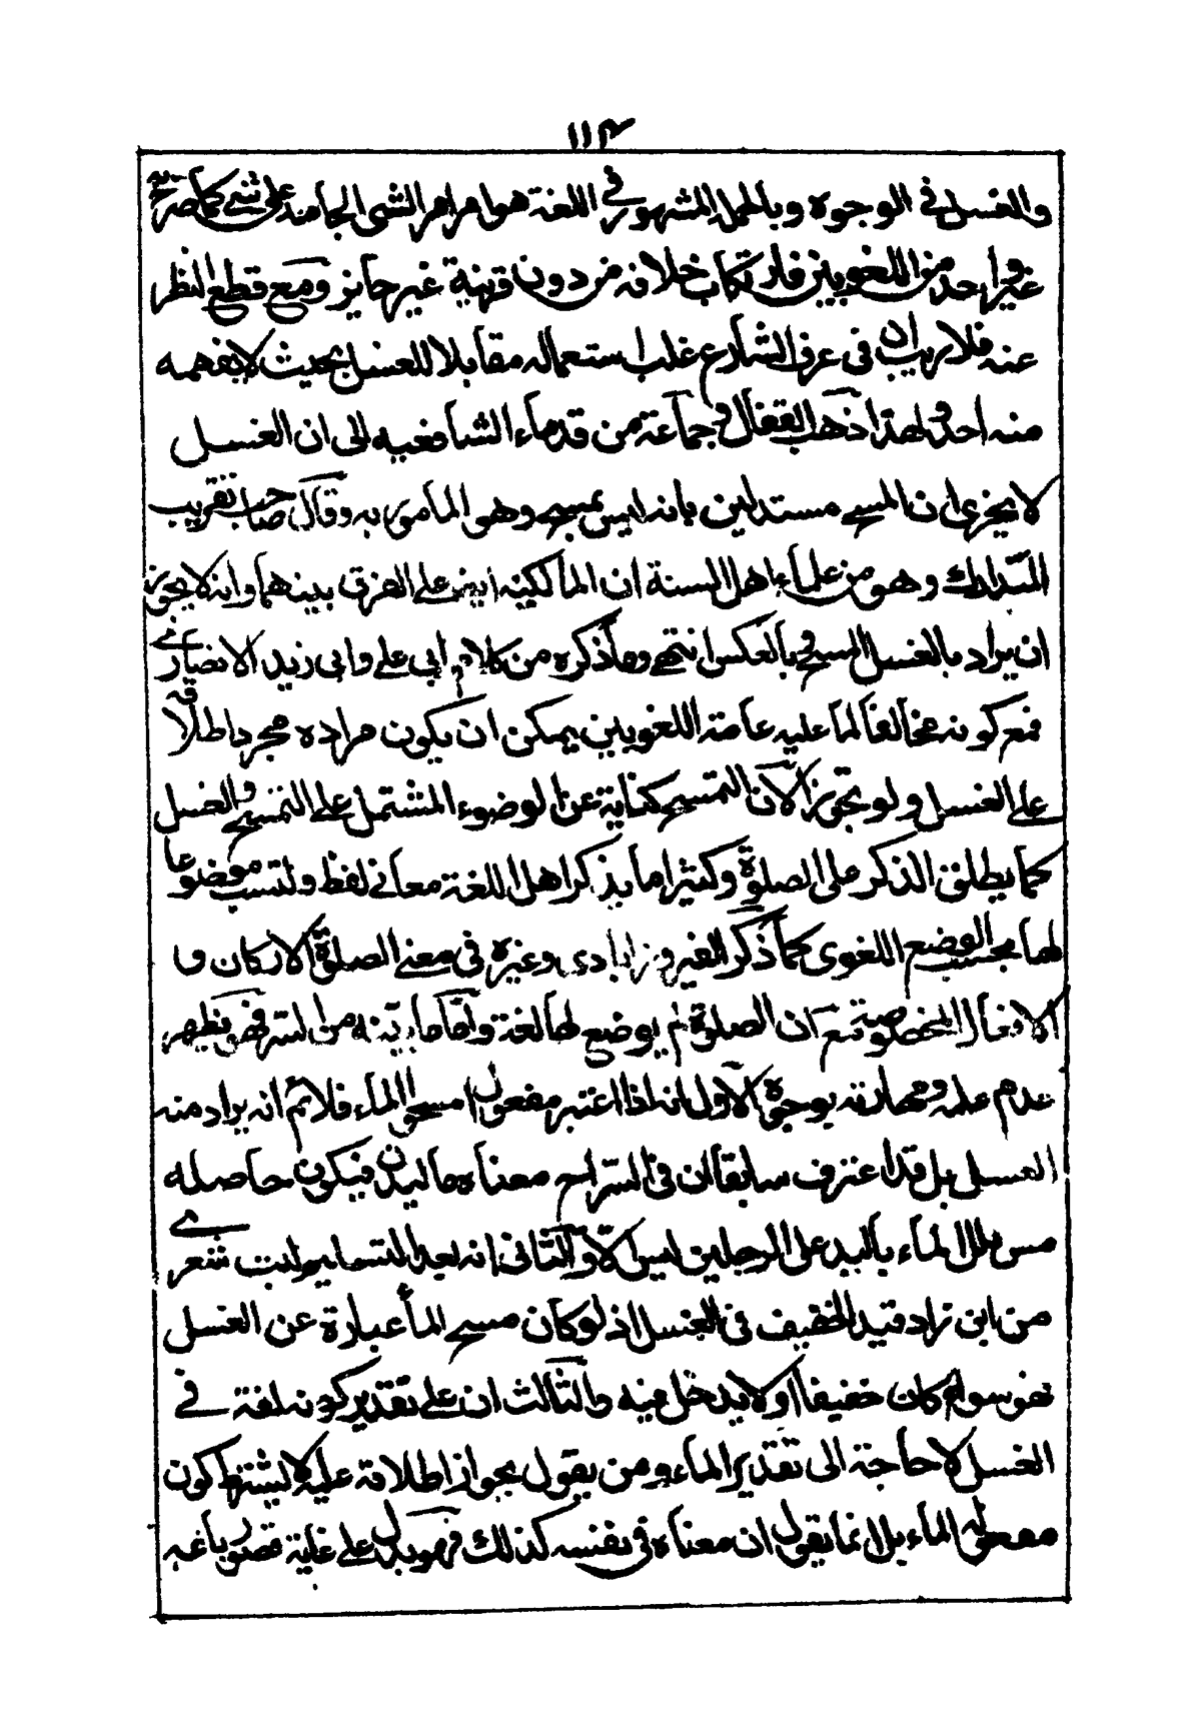 ١١٣
والغسل في الوجوه وبالجملة المشهور في اللغة هو امرار الشى الجامد على شى كما صرح به
غير واحد من اللغويين فارتكاب خلافه من دون قرينة غير جايز ومع قطع النظر
عنه فلا ريب ان فى عرف الشارع غلب استعماله مقابلا للغسل بحيث لا يفهمه
منه احد ولهذا ذهب القفال وجماعة من قدماء الشافعيه الى ان الغسل
لا يجزى عن المسح مستدلين بانه ليس بمسح وهو المامور به وقال صاحب تقريب
المدارك وهو من علماء اهل السنة ان المالكية على الفرق بينهما وانه لا يجوز
ان يراد بالغسل المسح وبالعكس انتهى وما ذكره من كلام ابى على وابى زيد الانصارى
فمع كونه مخالفا لما عليه عامة اللغويين يمكن ان يكون مراده مجرد اطلاقه
على الغسل ولو تجوزا لان التمسح كناية عن الوضوء المشتمل على التمسح والغسل
كما يطلق الذكر على الصلوة وكثيرا ما يذكر اهل اللغة معانى لفظ وليست موضوعا
لها بحسب الوضع اللغوى كما ذكر الفيروزابادى وغيره فى معنى الصلوة الاركان و
الافعال المخصوصة مع ان الصلوة لم يوضع لها لغة واما ما من السر فهو يظهر
عدم علمه ومهارته بوجوه الاول انه اذا اعتبر مفعول امسحوا الماء فلا ثم انه يراد منه
الغسل بل قد اعترف سابقا ان فى السراح معناه ماليدن فيكون حاصله
مس بلل الماء باليد على الرجلين ليس الا والثانى انه بعد التسليم ليت شعرى
من اين زاد قيد الخفيف فى الغسل اذ لو كان مسح الماء عبارة عن الغسل
فهو سواء كان خفيفا او لا يدخل فيه والثالث ان على تقدير كونه لغة فى
الغسل لا حاجة الى تقدير الماء ومن يقول بجواز اطلاقه عليه لا يشترط كون
مفعوله الماء بل انما يقول ان معناه فى نفسه كذلك فهو يدل على غاية قصور باعه